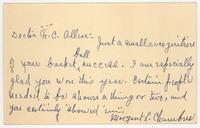 Doctor F. C. Allen:- Just a small recognition
ball
of your basket success. I am especially
glad you won this year. Certain people
needed to be shown a thing or two, and
you certainly "showed 'em"
Margaret L. Chambers